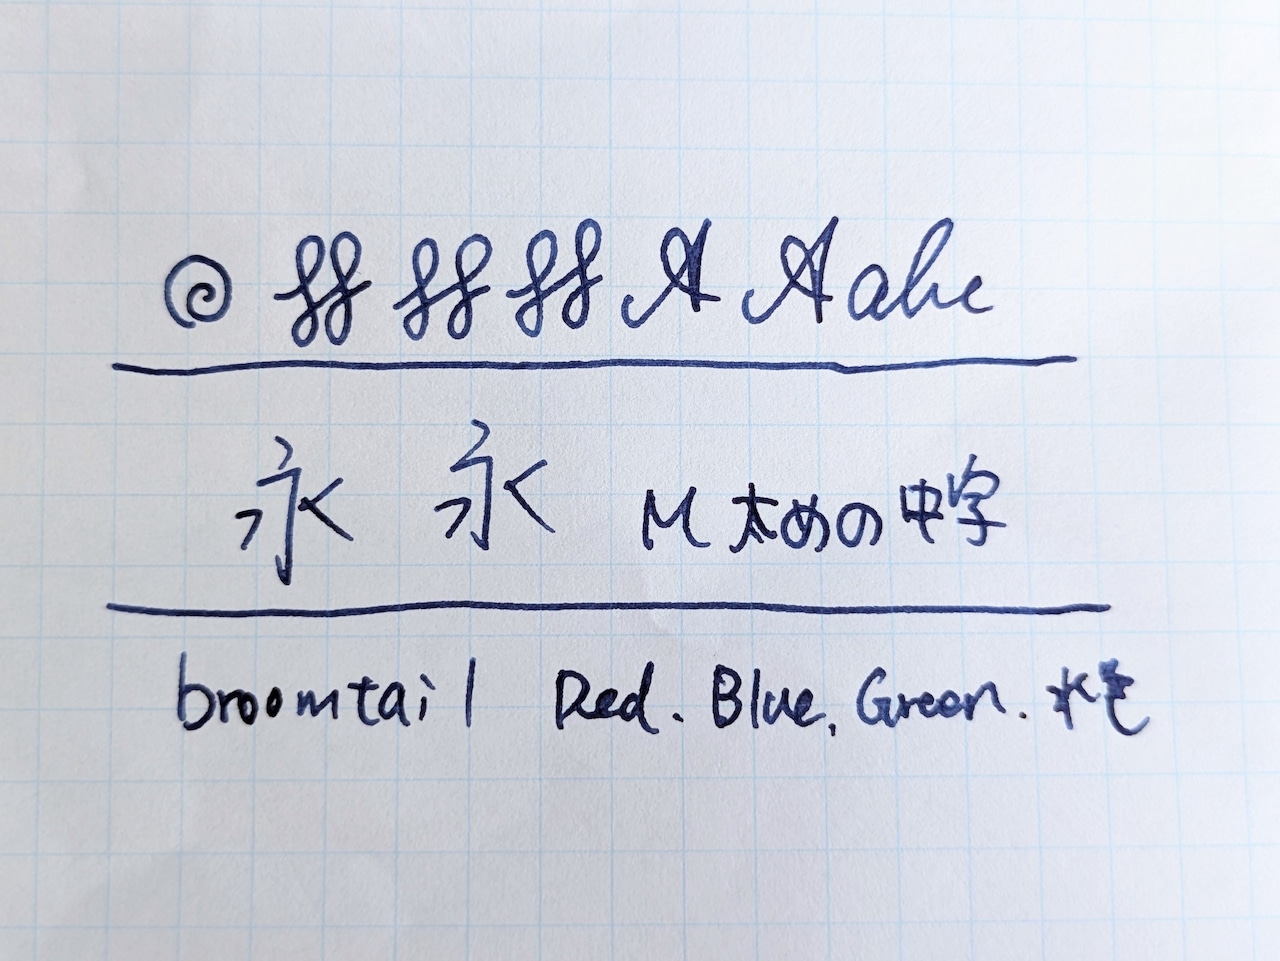 A A abc
永 永 M 太めの中字
broomtail Red. Blue, Green.